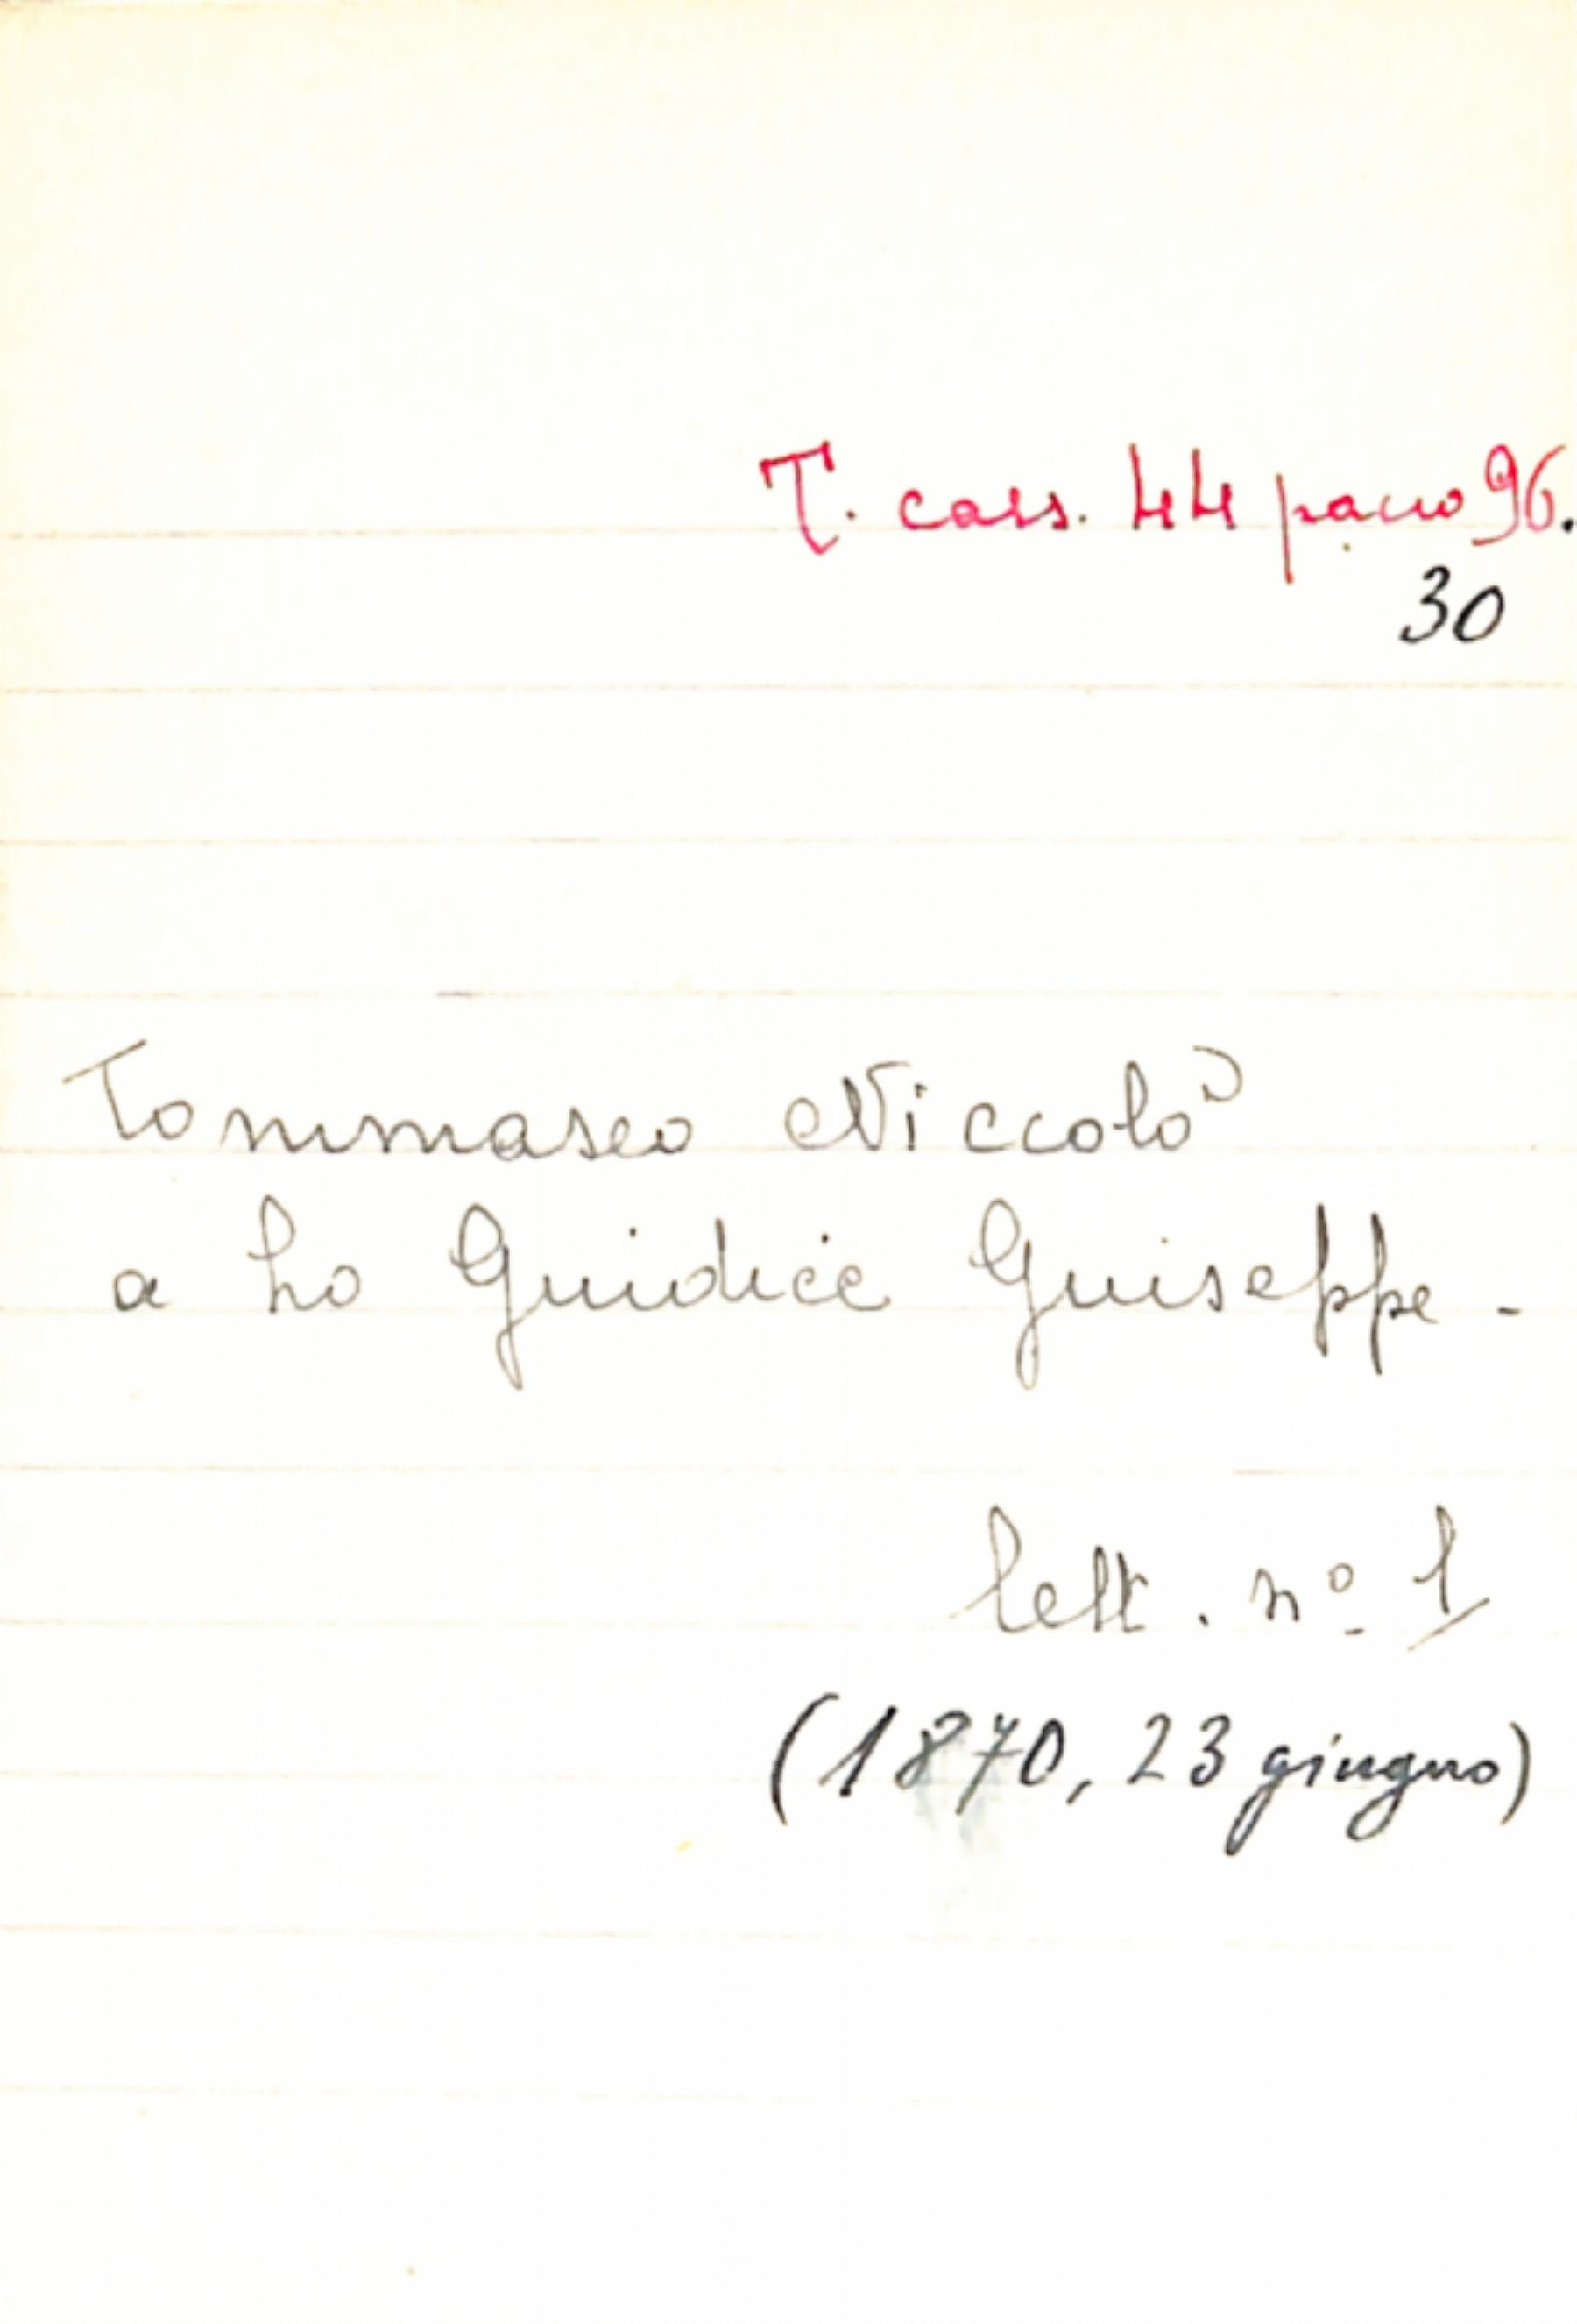 T. cass. 44 pacco 96.
30
Tommaseo Niccolò
a Lo Guidice Giuseppe -
lett. nº 1
(1870, 23 giugno)